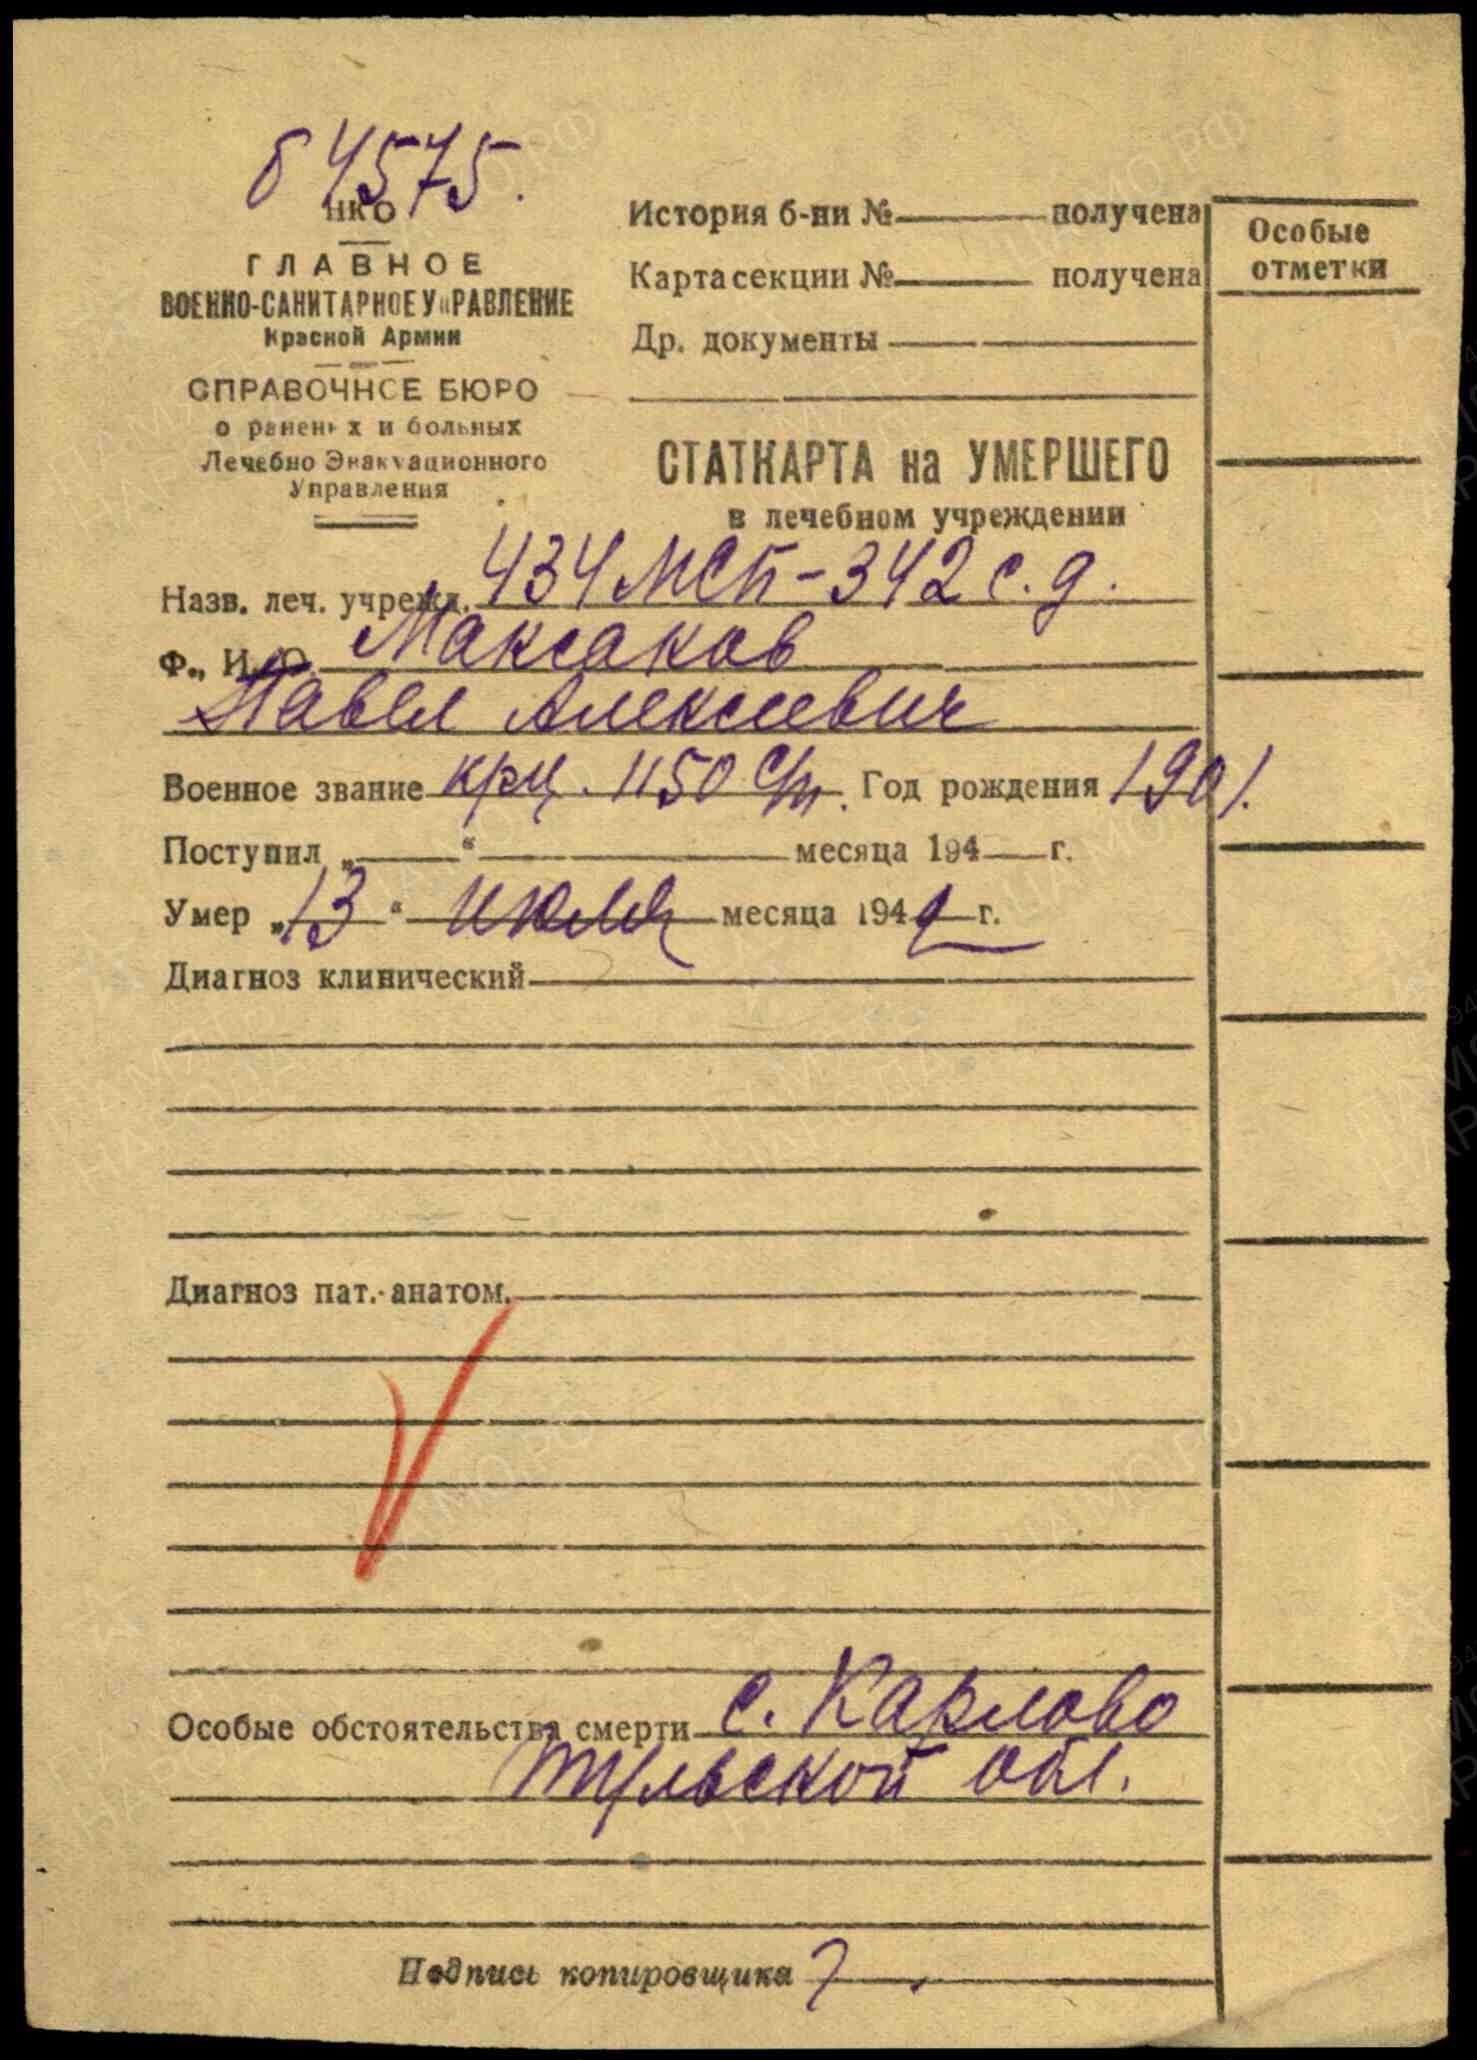 б 4575.
НКО
ГЛАВНОЕ
ВОЕННО-САНИТАРНОЕ УПРАВЛЕНИЕ
Красной Армии
СПРАВОЧНОЕ БЮРО
о раненых и больных
Лечебно Эвакуационного
Управления
История б-ни № получена
Карта секции № получена
Др. документы
Особые
отметки
СТАТКАРТА на УМЕРШЕГО
в лечебном учреждении
Назв. леч. учрежд. 434 МСБ - 342 с.д.
Ф., И. О. Максаков
Павел Алексеевич
Военное звание крц. 1150 с/п. Год рождения 1901.
Поступил „ “ месяца 194 г.
Умер „13“ июля месяца 1942 г.
Диагноз клинический
Диагноз пат.-анатом.
Особые обстоятельства смерти с. Карлово
Тульской обл.
Подпись копировщика